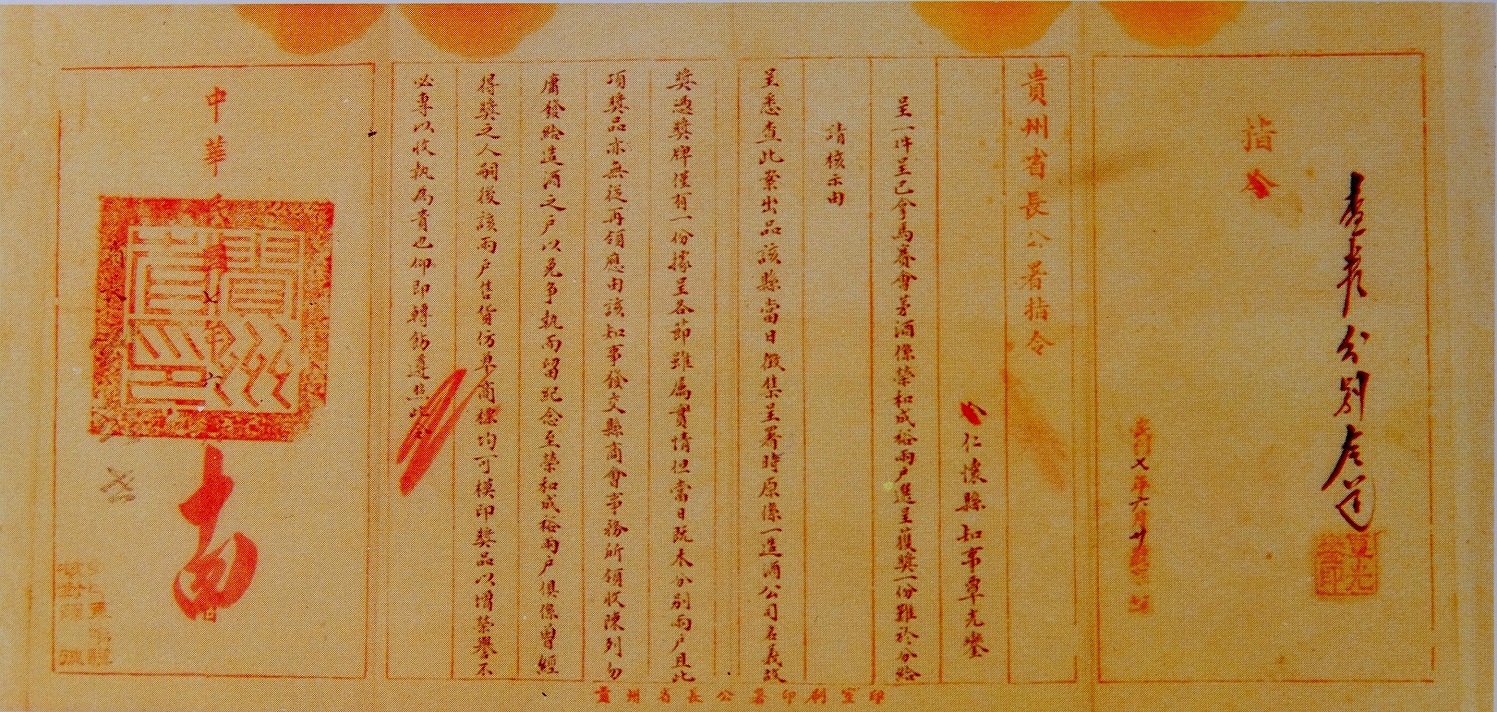 指令
查卷分別存送
七年六月廿
貴州省長公署指令
令仁懷縣知事覃光鑾
呈一件呈巴拿馬賽會茅酒係榮和成裕兩戶選呈獲獎一份難於分給
請核示由
呈悉查此案出品該縣當日徵集呈署時原係一造酒公司名義故
獎憑獎牌僅有一份據呈各節雖屬實情但當日既未分別兩戶且此
項獎品亦無從再領應由該知事發交縣商會事務所領收陳列勿
庸發給造酒之戶以免爭執而留紀念至榮和成裕兩戶俱係曾經
得獎之人嗣後該兩戶售貨仿單商標均可模印獎品以增榮譽不
必專以收執為貴也仰即轉飭遵照此令
中華民國七年六
貴州省長之印
貴州省長公署印刷室印